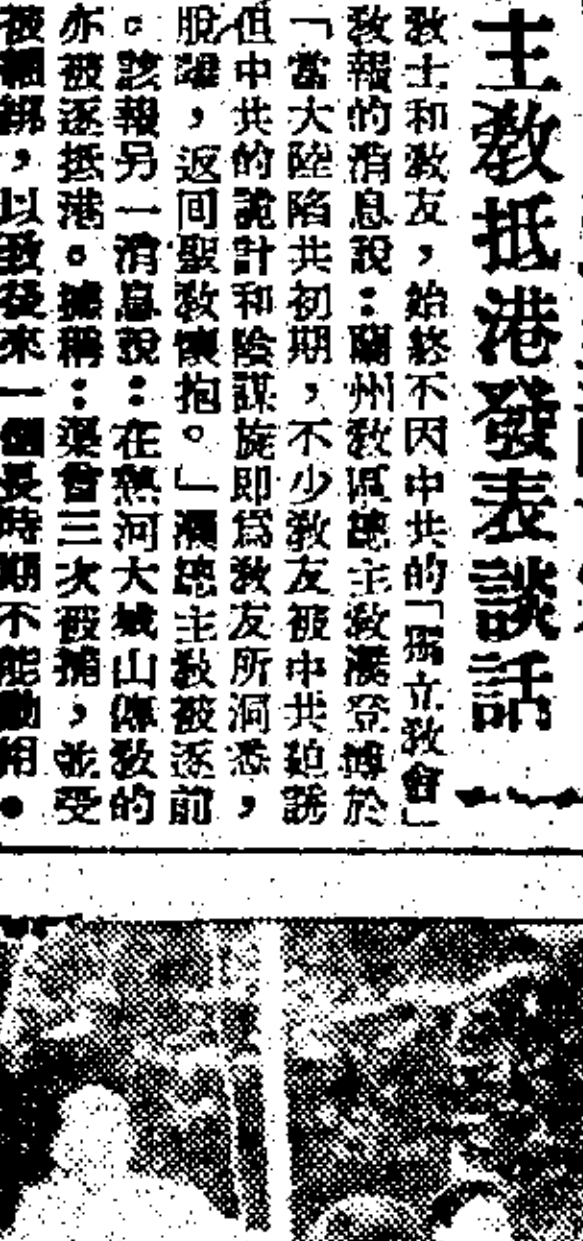 主教抵港發表談話
教士和教友，始終不因中共的「獨立教會」
教報的消息說：蘭州教區總主教濮登博於
「當大陸陷共初期，不少教友被中共迫誘
但中共的詭計和陰謀旋即爲教友所洞悉，
脫離，返回聖教懷抱。」濮總主教被逐前
。該報另一消息說：在熱河大城山傳教的
亦被逐抵港。據稱：渠曾三次被捕，並受
被綑綁，以致發來一個長時期不能動用。